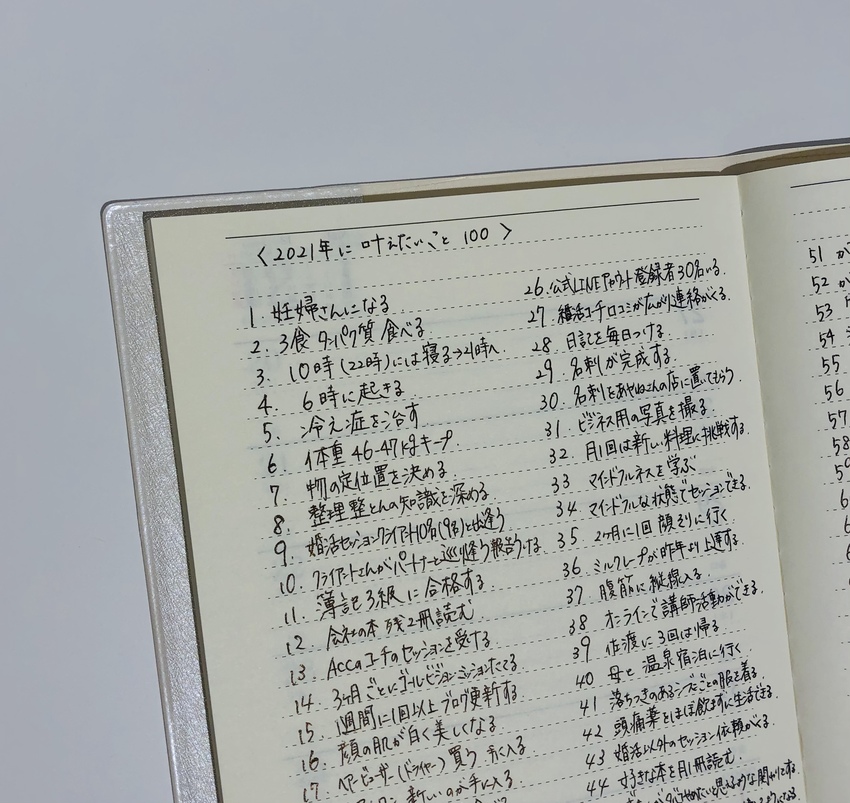 〈2021年に叶えたいこと 100〉
1. 妊婦さんになる
2. 3食 タンパク質 食べる
3. 10時(22時)には寝る→21時へ
4. 6時に起きる
5. 冷え症を治す
6. 体重 46-47kgキープ
7. 物の定位置を決める
8. 整理整とんの知識を深める
9. 婚活セッションクライアント10名(9名)と出逢う
10. クライアントさんがパートナーと巡り逢う報告うける
11. 簿記3級に合格する
12. 会社の本 残2冊読む
13. Accaコーチのセッションを受ける
14. 3ヶ月ごとにゴール・ビジョン・ミッションたてる
15. 1週間に1回以上ブログ更新する
16. 顔の肌が白く美しくなる
17. ヘアービューザー(ドライヤー)買う 手に入る
新しいのが手に入る
26. 公式LINEアカウント登録者30名いる
27. 婚活コーチ口コミが広がり連絡がくる
28. 日記を毎日つける
29. 名刺が完成する
30. 名刺をあやねこんの店に置いてもらう
31. ビジネス用の写真を撮る
32. 月1回は新しい料理に挑戦する
33. マインドフルネスを学ぶ
34. マインドフルな状態でセッションできる
35. 2ヶ月に1回 顔そりに行く
36. ミルクレープが昨年より上達する
37. 腹筋に縦線入る
38. オンラインで講師活動ができる
39. 佐渡に3回は帰る
40. 母と温泉宿泊に行く
41. 落ちつきのあるシンプルごとの服を着る
42. 頭痛薬をほぼ飲まずに生活できる
43. 婚活以外のセッション依頼がくる
44. 好きな本を月1冊読む
51 が
52 が
53
54
55
56
57
58
59
6
6